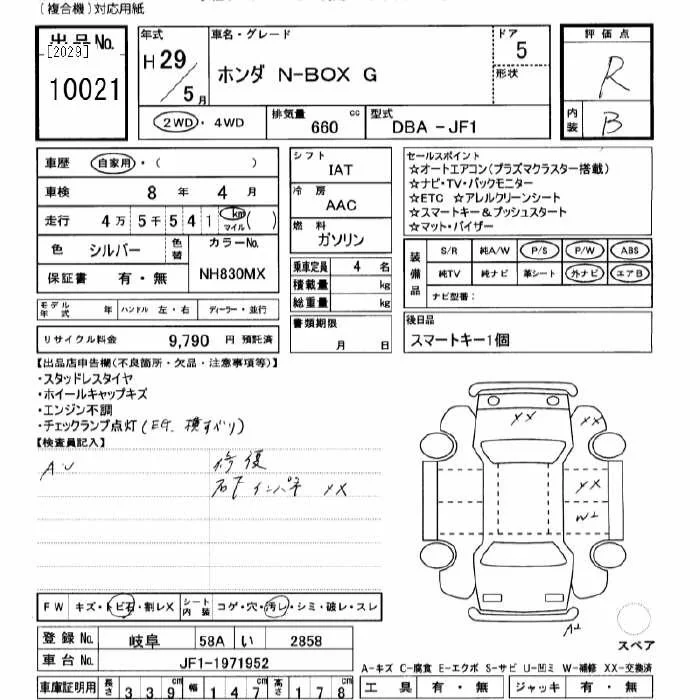 (複合機)対応用紙
出品No.
[2029]
10021
年式
H 29 / 5 月
車名・グレード
ホンダ N-BOX G
ドア
5
形状
2WD・4WD
排気量 cc
660
型式
DBA -JF1
評価点
R
内装
B
車歴 自家用・( )
車検 8 年 4 月
走行 4万5千541 km マイル ( )
色 シルバー 色替 カラーNo.
保証書 有・無 NH830MX
モデル年式 年 ハンドル 左・右 ディーラー・並行
リサイクル料金 9,790 円 預託済
シフト
IAT
冷房
AAC
燃料
ガソリン
乗車定員 4 名
積載量 kg
総重量 kg
書類期限
月 日
セールスポイント
☆オートエアコン(プラズマクラスター搭載)
☆ナビ・TV・バックモニター
☆ETC ☆アレルクリーンシート
☆スマートキー&プッシュスタート
☆マット・バイザー
装備品
S/R 純A/W P/S P/W ABS
純TV 純ナビ 革シート 外ナビ エアB
ナビ型番:
後日品
スマートキー1個
【出品店申告欄(不良箇所・欠品・注意事項等)】
・スタッドレスタイヤ
・ホイールキャップキズ
・エンジン不調
・チェックランプ点灯(EG. 横すべり)
【検査員記入】
AU 修復
右F インパネ XX
XX XX
XX
W2
A2
スペア
FW キズ・トビ石・割レX シート内装 コゲ・穴・汚レ・シミ・破レ・スレ
登録No. 岐阜 58A い 2858
車台No. JF1-1971952
車庫証明用 長さ 339 cm 幅 147 cm 高さ 178 cm
A-キズ C-腐食 E-エクボ S-サビ U-凹ミ W-補修 XX-交換済
工具 有・無 ジャッキ 有・無